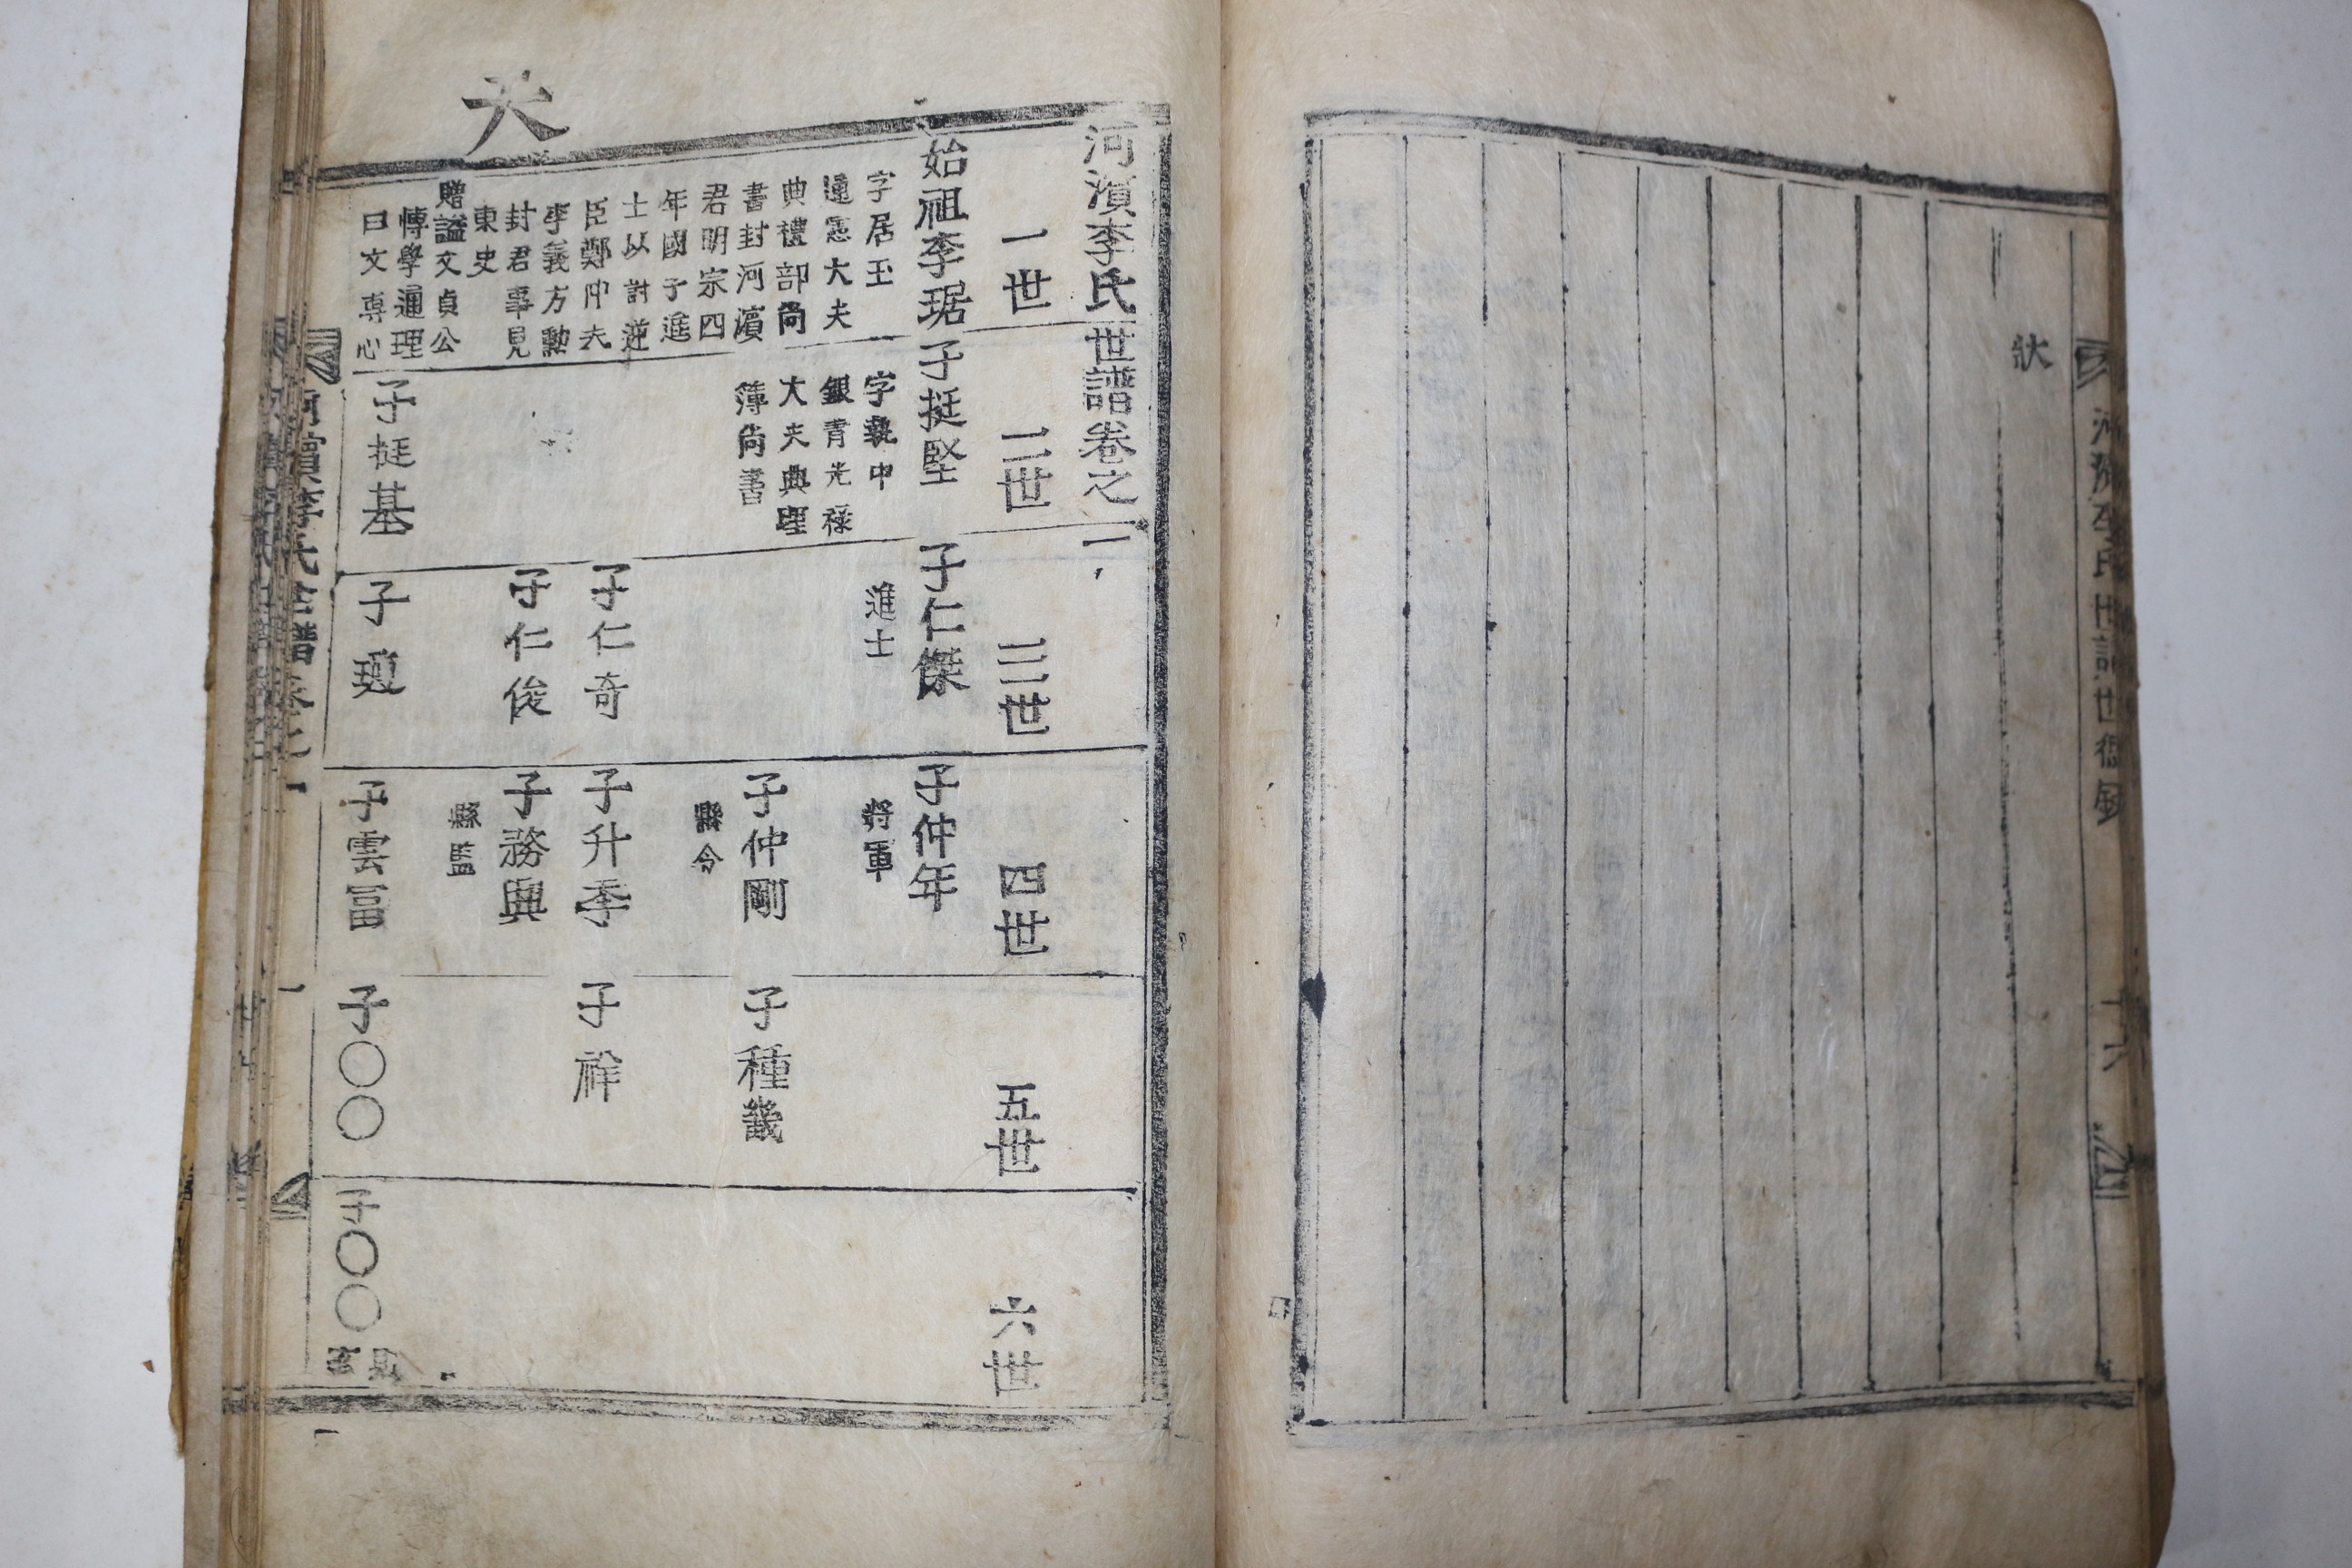 狀
河濱李氏世譜世德錄
十六
河濱李氏世譜卷之一
一世
二世
三世
四世
五世
六世
始祖李琚
字居玉
通憲大夫
典禮部尚
書封河濱
君明宗四
年國子進
士以討逆
臣鄭仲夫
李義方勳
封君事見
東史
贈謚文貞公
博學通理
曰文專心
子挺堅
字執中
銀青光祿
大夫典理
簿尚書
子仁傑
進士
子仲年
將軍
子仲剛
縣令
子種畿
子仁奇
子升季
子祥
子仁俊
子務興
縣監
子挺基
子雲富
子〇〇
子〇〇
天
河濱李氏世譜卷之一
一